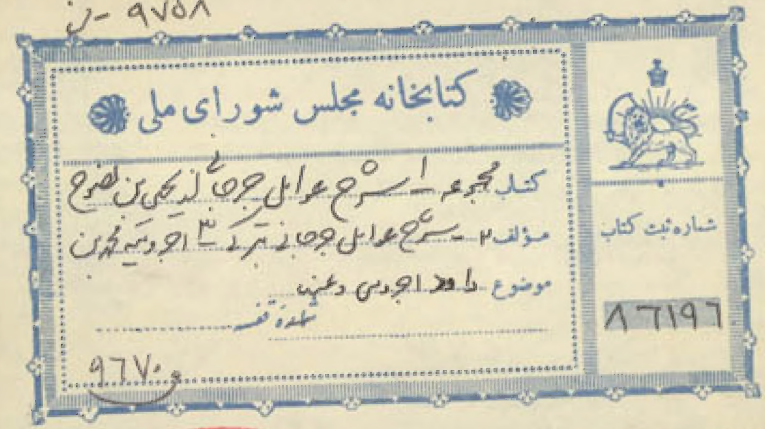 ۹۷۵۸ - ن
کتابخانه مجلس شورای ملی
کتاب مجموعه ۱ - شرح عوامل جرجانی از یحیی بن نصوح
مؤلف ۲ - شرح عوامل جرجانی ترکی ۳ اجرومیه محمد بن
موضوع داود اجرومی و غیره
شماره قفسه
۹۶۷۰
شماره ثبت کتاب
۸۶۱۹۶